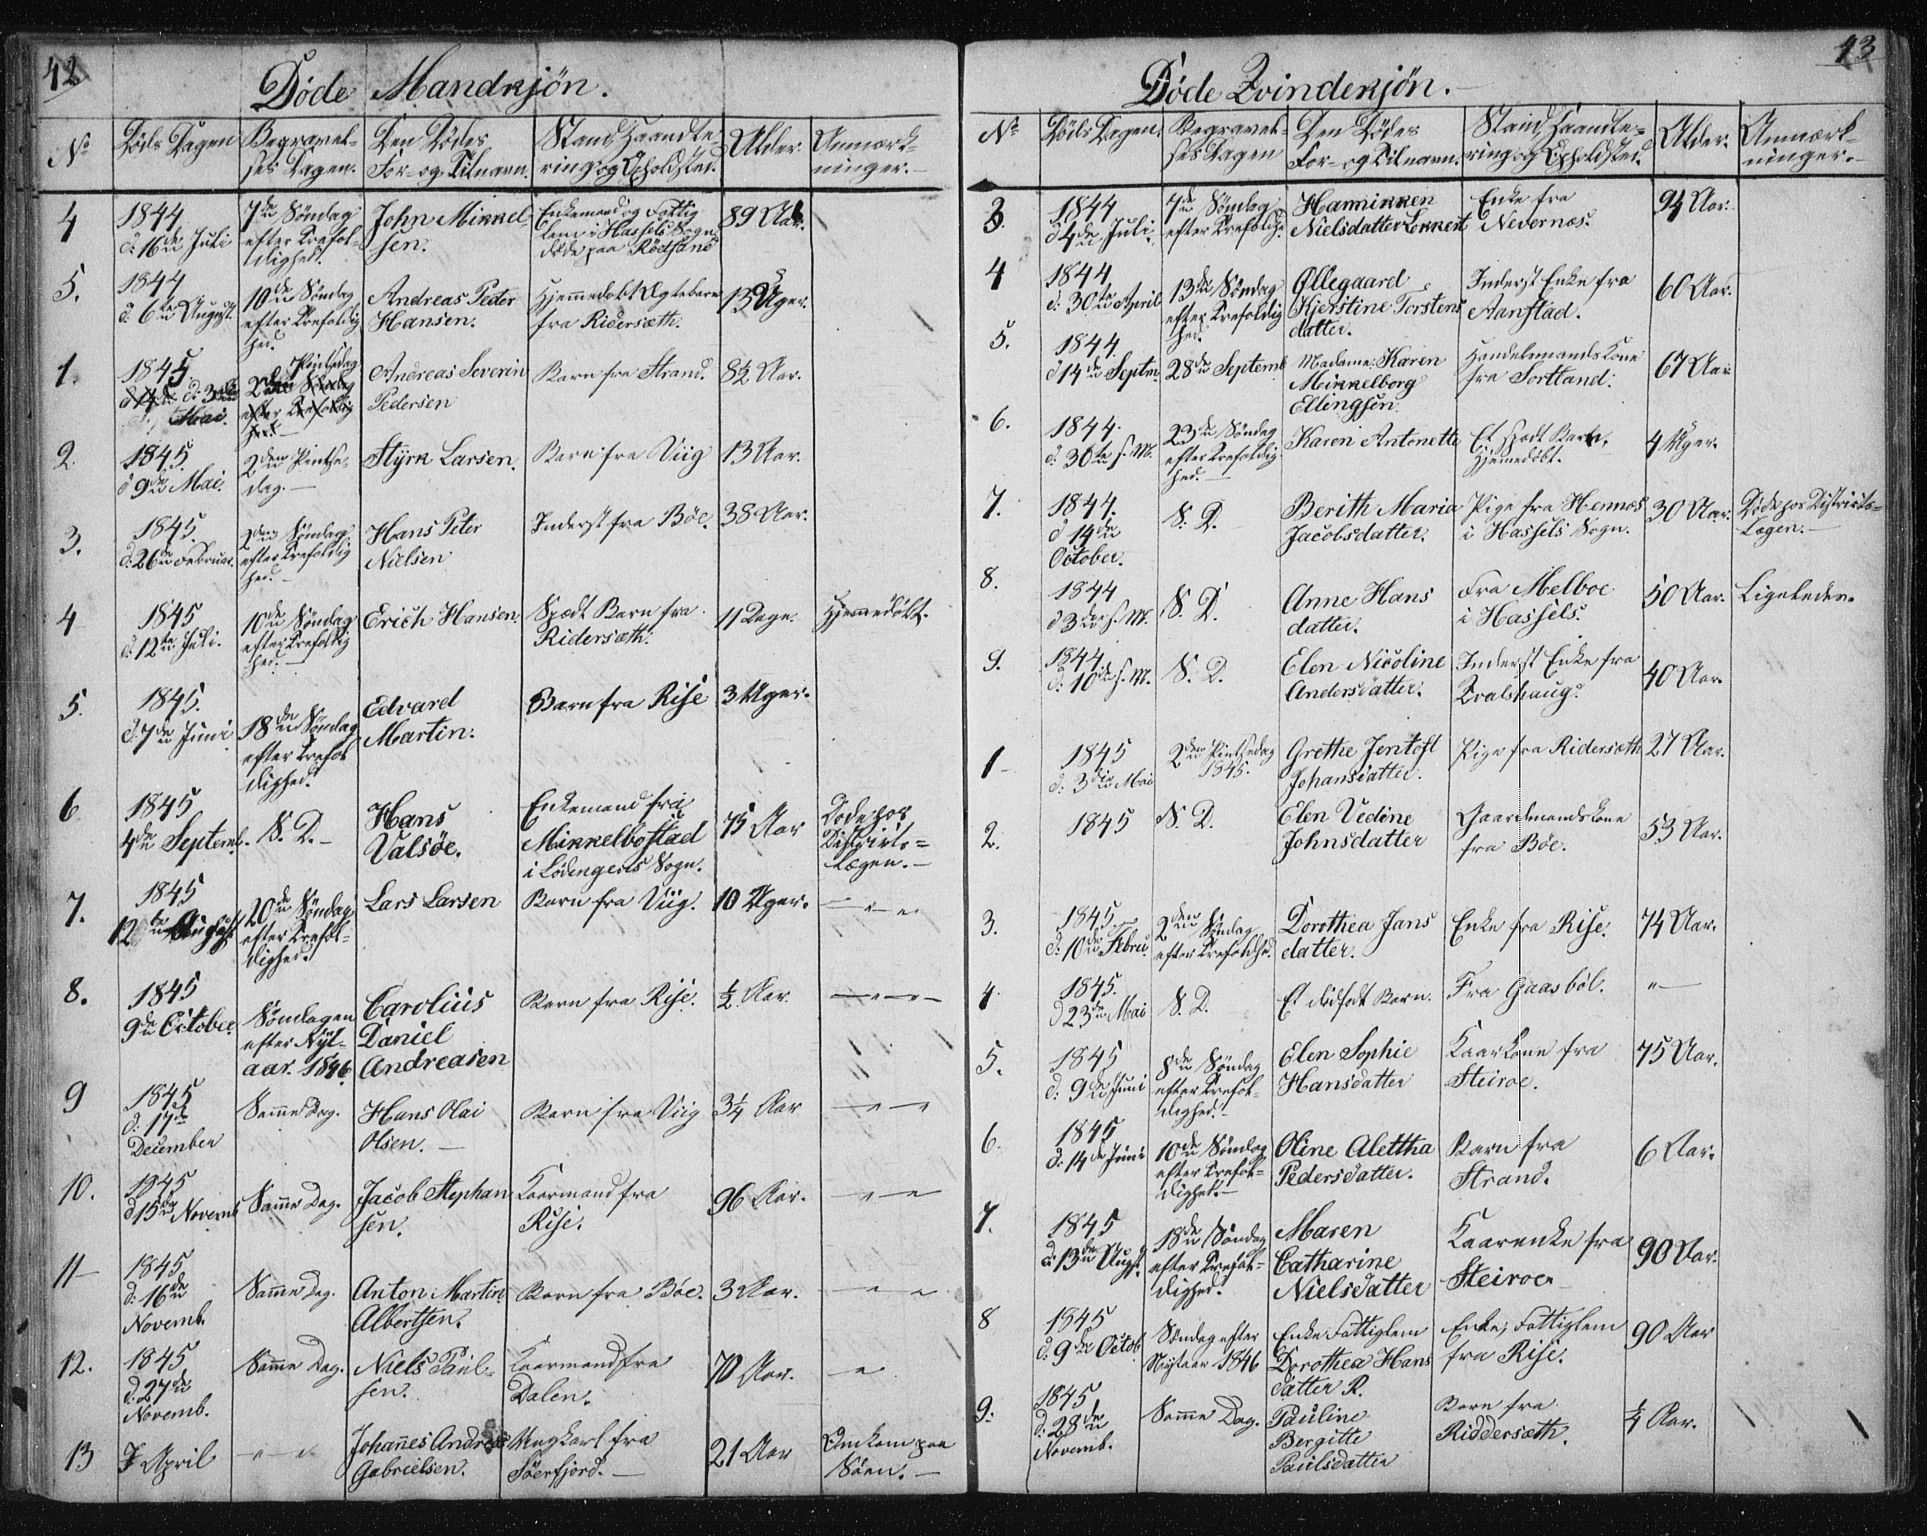 42
Døde Mandkjøn.
No
Døds Dagen
Begravel-
ses Dagen.
Den Dødes
For- og Tilnavn.
Stand, Haandte-
ring og Opholdsted.
Alder.
Anmærk-
ninger.
4
1844
d: 16de Juli
7de Søndag
efter Trefol-
dighed.
John Mikkel-
sen.
Enkemand og Fattig
Lem i Hassels Sogn
døde paa Rødsand
89 Aar.
5.
1844
d. 6te August.
10de Søndag
efter Trefoldig
hed.
Andreas Peder
Hansen.
Hjemmedøbt Ægtebarn
fra Ridersæth.
13 Uger.
1.
1845
d: 3die
Mai.
2den Pintsedag
Andreas Severin
Pedersen
Barn fra Strand.
8½ Aar.
2.
1845.
d 9de Mai.
2den Pintse-
dag.
Styrk Larsen.
Barn fra Viig
13 Aar.
3.
1845.
d: 26de Februar.
2den Søndag
efter Trefoldig
hed.
Hans Peter
Nielsen
Inderst fra Böe.
38 Aar.
4
1845
d: 12te Juli.
10de Søndag
efter Trefoldig
hed.
Erich Hansen.
Spædt Barn fra
Ridersæth.
11 Dage.
Hjemmedøbt.
5.
1845.
d. 7de Juni
18de Søndag
efter Trefol
dighed.
Edvard
Martin.
Barn fra Rise
3 Uger.
6.
1845
4de Septemb.
S. D.
Hans
Valsöe.
Enkemand fra
Mikkelbostad
i Lödingens Sogn.
75 Aar
Døde hos
Districts-
Lægen.
7.
1845
12te August
20de Søndag
efter Trefol-
dighed.
Lars Larsen
Barn fra Viig.
10 Uger.
— " — "
8.
1845
9de October
Søndagen
efter Nyt-
aar. 1846.
Carolius
Daniel
Andreasen
Barn fra Rise.
½ Aar.
— " — " —
9
1845
d: 17de
December
Samme Dag.
Hans Olai
Olsen.
Barn fra Viig
3¼ Aar
— " — "
10.
1845
d 15de Novemb
Samme Dag.
Jacob Stephan
sen.
Kaarmand fra
Rise.
96 Aar.
— " — "
11
1845
d: 16de
Novemb.
Samme Dag.
Anton Martin
Albertsen.
Barn fra Böe.
3 Aar.
— " — "
12.
1845
d. 27de
Novemb.
Samme Dag.
Niels Paul-
sen.
Kaarmand fra
Dalen.
70 Aar.
— "
13
7 April
" — "
Johannes Andreas
Gabrielsen.
Ungkarl fra
Söerfjord.
21 Aar
Omkom paa
Søen.
43
Døde Qvindekjøn.
No
Døds Dagen.
Begravel-
ses Dagen
Den Dødes
For- og Tilnavn.
Stand, Haandte-
ring og Opholdsted.
Alder.
Anmærk-
ninger.
3.
1844
d 4de Juli.
7de Søndag
efter Trefoldhd.
Hamikken
Nielsdatter Lokkert
Enke fra
Nevernæs.
94 Aar.
4
1844
d: 30te April
13de Søndag
efter Trefoldig
hed.
Ollegaard
Kjerstine Torstens
datter.
Inderst Enke fra
Aanstad.
60 Aar.
5.
1844.
d 14de Septm.
28de Septemb
Madame Karen
Mikkelborg
Ellingsen.
Handelsmands Kone
fra Sortland.
67 Aar
6.
1844.
d. 30te s. M.
23de Søndag
efter Trefoldig
hed.
Karen Antonette
Et spædt Barn,
Hjemmedøbt.
4 Uger.
7.
1844.
d 14de
October.
S. D.
Berith Maria
Jacobsdatter.
Pige fra Hennes
i Hassels Sogn.
30 Aar.
Døde hos Districts-
Lægen.
8.
1844
d 3die s. M.
S. D.
Anne Hans
datter.
Fra Melboe
i Hassels.
50 Aar.
Ligeledes.
9.
1844
d: 10de s. M.
S. D.
Elen Nicoline
Andersdatter.
Inderst Enke fra
Kvalshaug.
40 Aar.
1
1845
d: 3die Mai
2den Pintsedag
1845.
Grethe Jentoft
Johansdatter.
Pige fra Ridersæth
27 Aar.
2.
1845
S. D.
Elen Vedine
Johnsdatter
Gaardmandskone
fra Böe.
53 Aar.
3.
1845
d: 10de Febru.
2den Søndag
efter Trefoldhd.
Dorothea Jans
datter.
Enke fra Rise.
74 Aar.
4.
1845.
d 23de Mai
S. D.
Et dødfødt Barn.
Fra Gaasböl.
" —
5.
1845
d: 9de Juni
8de Søndag
efter Trefol-
dighed.
Elen Sophie
Hansdatter
Kaarkone fra
Steiroe.
75 Aar.
6.
1845
d: 14de Juni
10de Søndag
efter Trefol-
dighed.
Oline Alettha
Pedersdatter.
Barn fra
Strand.
6 Aar.
7.
1845
d. 13de Augst.
18de Søndag
efter Trefol-
dighed.
Maren
Catharine
Nielsdatter
Kaarenke fra
Steiroe
90 Aar.
8
1845
d: 9de Octob
Søndag efter
Nytaar 1846
Enke Fattiglem
Dorothea Hans
datter R.
Enke, Fattiglem
fra Rise.
90 Aar
9.
1845
d: 28de
Novemb.
Samme Dag.
Pauline
Bergitte
Paulsdatter
Barn fra
Riddersæth.
¼ Aar.